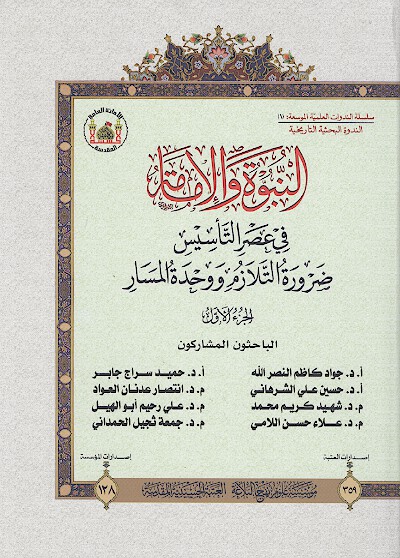 سلسلة الندوات العلمية الموسعة: (١)
الندوة البحثية التأريخية
الأمانة العامة
المقدسة
النبوة والإمامة
في عصر التأسيس
ضرورة التلازم ووحدة المسار
الجزء الأول
الباحثون المشاركون
أ. د. جواد كاظم النصر الله
أ. د. حميد سراج جابر
أ. د. حسين علي الشرهاني
م. د. انتصار عدنان العواد
م. د. شهيد كريم محمد
م. د. علي رحيم أبو الهيل
م. د. علاء حسن اللامي
م. د. جمعة ثجيل الحمداني
إصدارات العتبة
إصدارات المؤسسة
٣٥٩
مؤسسة علوم نهج البلاغة
العتبة الحسينية المقدسة
١٢٨